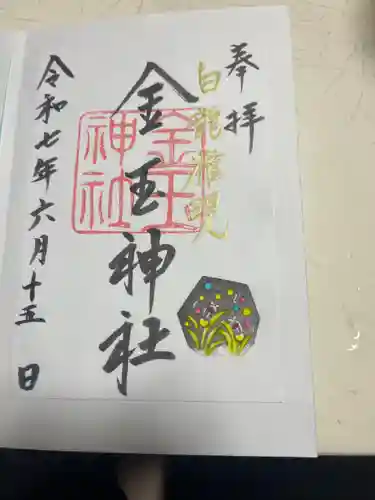 奉拝
白龍
金玉神社
金玉神社
令和七年六月十五日